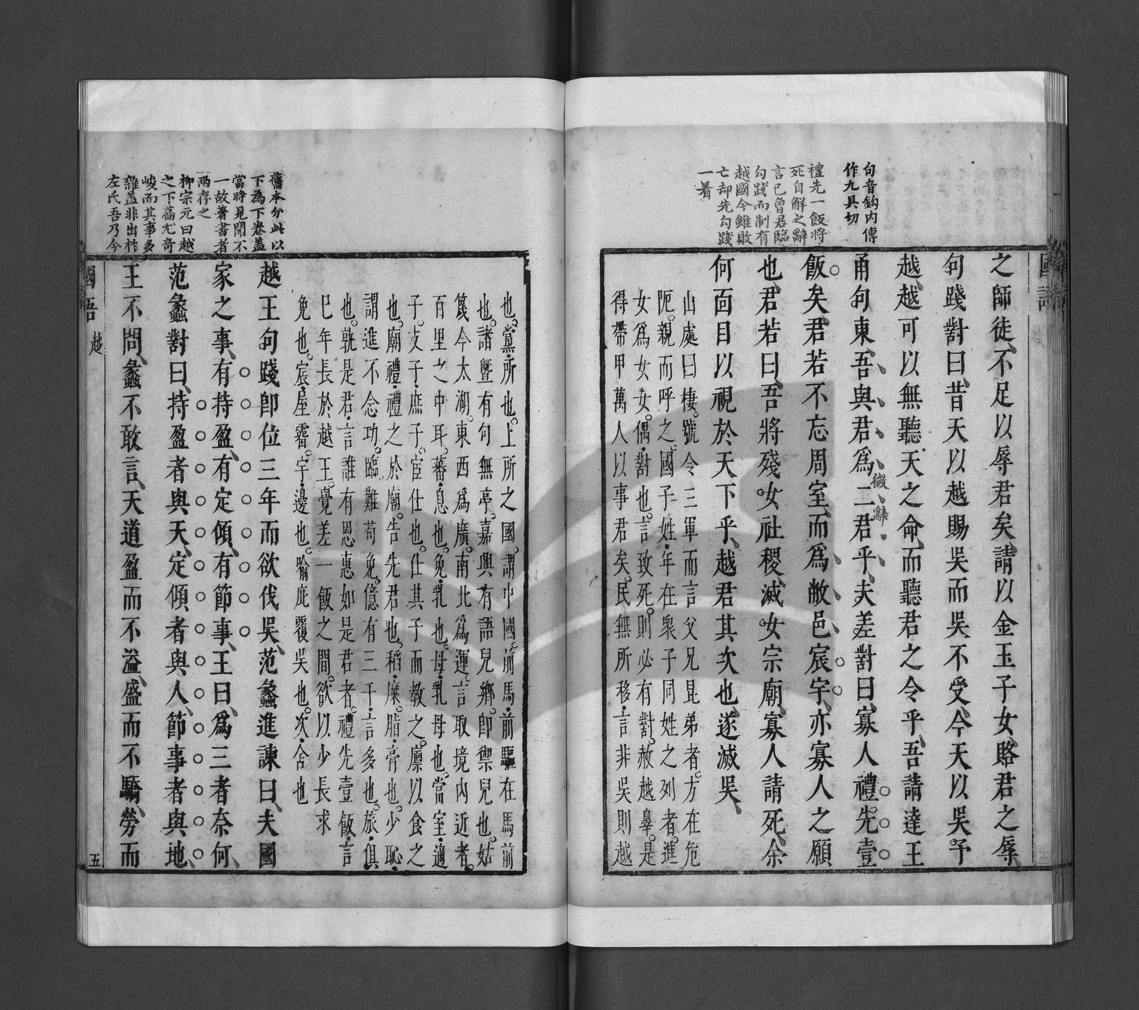 國語
句音鈎内傳
作九具切
禮先一飯將
死自解之辭
言已曾君臨
勾踐而制有
越國今雖敗
亡却先勾踐
一着
之師徒不足以辱君矣請以金玉子女賂君之辱
句踐對曰昔天以越賜吳而吳不受今天以吳予
越越可以無聽天之命而聽君之令乎吾請達王
甬句東吾與君爲二君乎夫差對曰寡人禮先壹
微辭
飯矣君若不忘周室而爲敝邑宸宇亦寡人之願
也君若曰吾將殘女社稷滅女宗廟寡人請死余
何面目以視於天下乎越君其次也遂滅吳
山處曰棲號令三軍而言父兄昆弟者方在危
阨親而呼之國子姓年在衆子同姓之列者進
女女爲女女偶對也言致死則必有對赦越辠是
得帶甲萬人以事君矣民無所移言非吳則越
舊本分此以
下爲下卷蓋
當時見聞不
一故著書者
兩存之
柳宗元曰越
之下篇尤奇
峻而其事多
雜蓋非出於
左氏吾乃今
也黨所也上所之國謂中國前馬前驅在馬前
也諸暨有句無亭嘉興有語兒鄉卽禦兒也姑
篾今太湖東西爲廣南北爲運言取境内近者
百里之中耳蕃息也免乳也母乳母也當室適
子支子庶子宦仕也仕其子而教之廪以食之
也廟禮禮之於廟告先君也稻糜脂膏也少恥
謂進不念功臨難苟免億有三千言多也旅俱
也孰是君言誰有恩惠如是君者禮先壹飯言
巳年長於越王覺差一飯之間欲以少長求
免也宸屋霤宇邊也喻庇覆吳也次舍也
越王句踐卽位三年而欲伐吳范蠡進諫曰夫國
家之事有持盈有定傾有節事王曰爲三者奈何
范蠡對曰持盈者與天定傾者與人節事者與地
王不問蠡不敢言天道盈而不溢盛而不驕勞而
國語
越
五